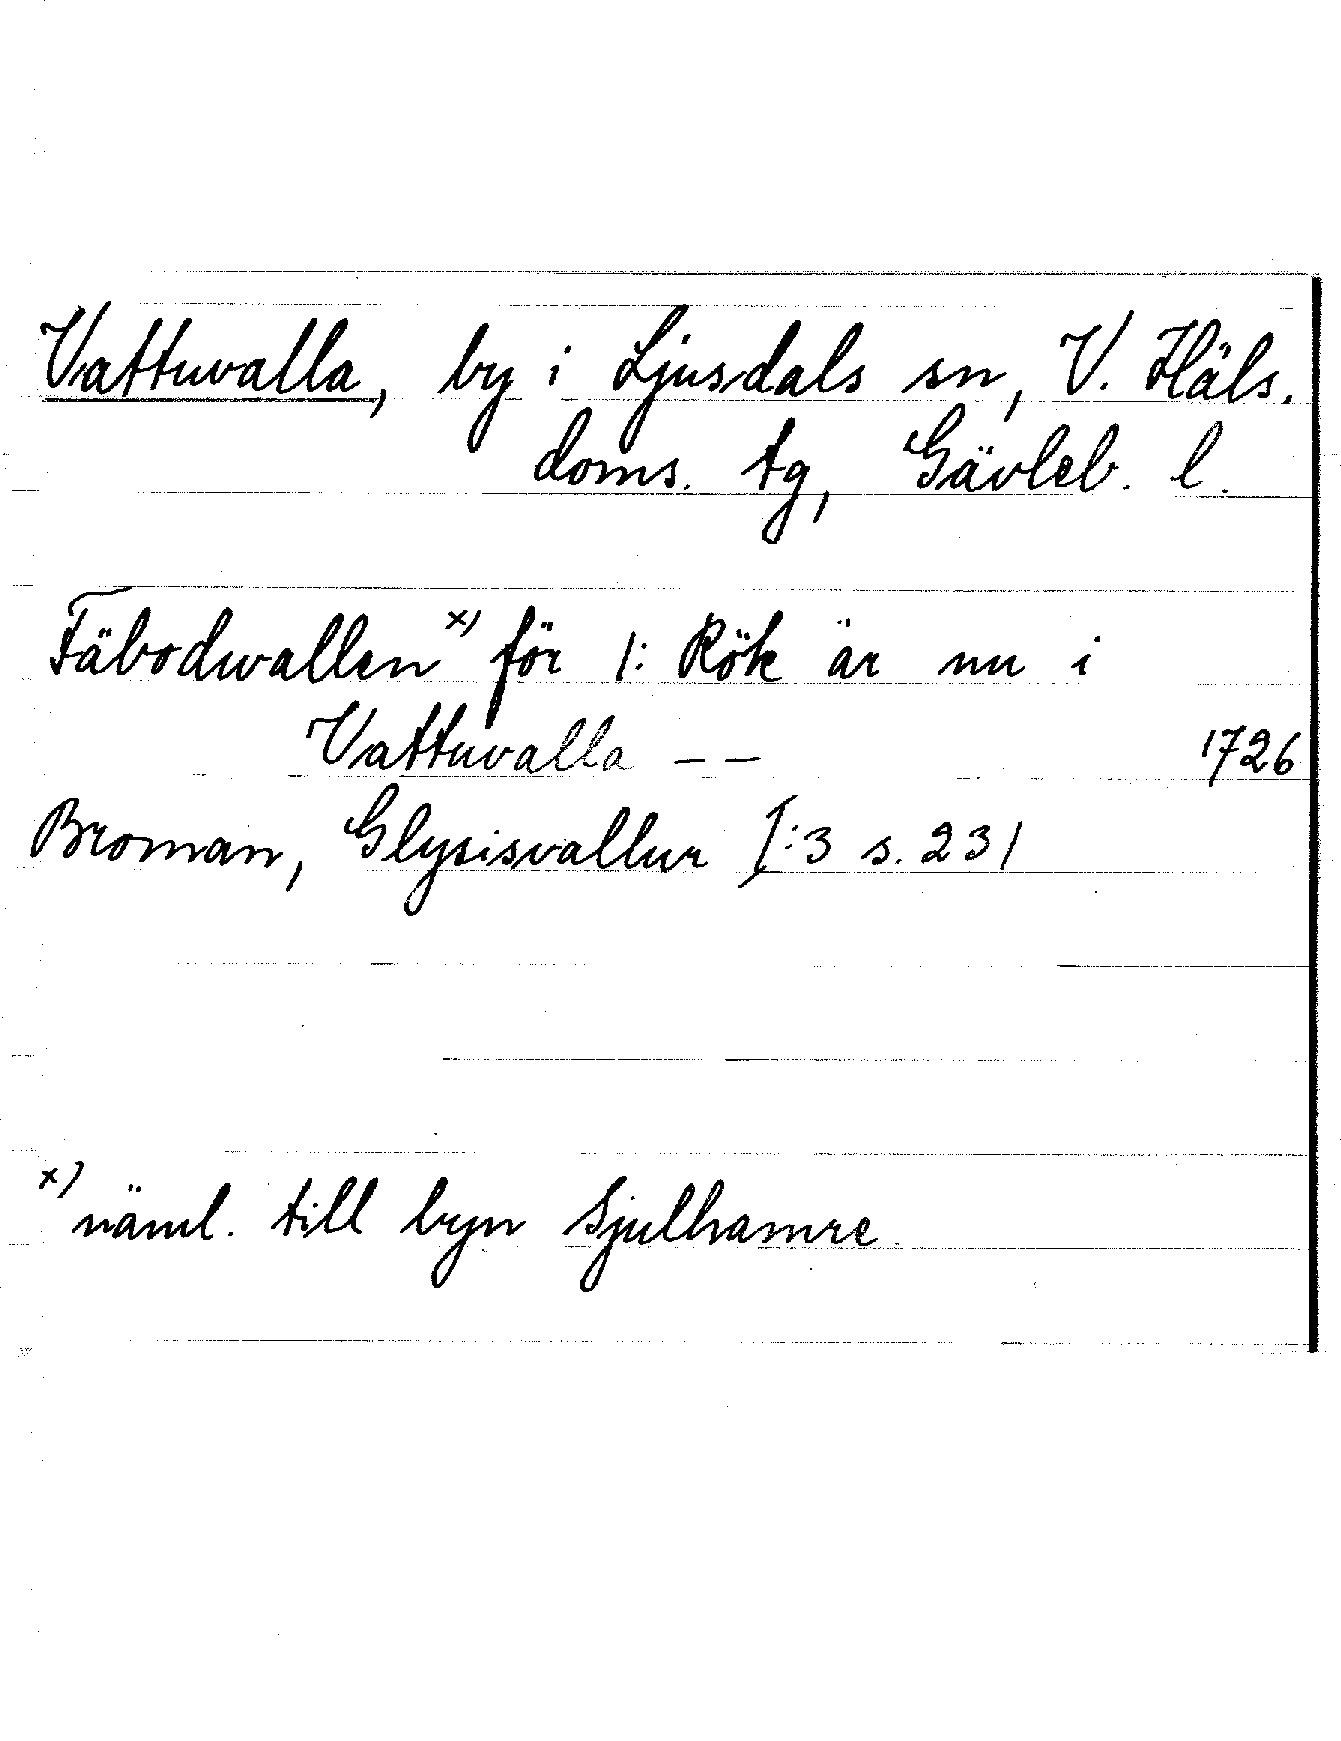 Vattuvalla, by i Ljusdals sn, V. Häls.
doms. tg, Gävleb. l.
Fäbodwallen x) för 1: Rök är nu i
Vattuvalla — — 1726
Broman, Glysisvallur I:3 s. 231
x) näml. till byn Sjulhamre